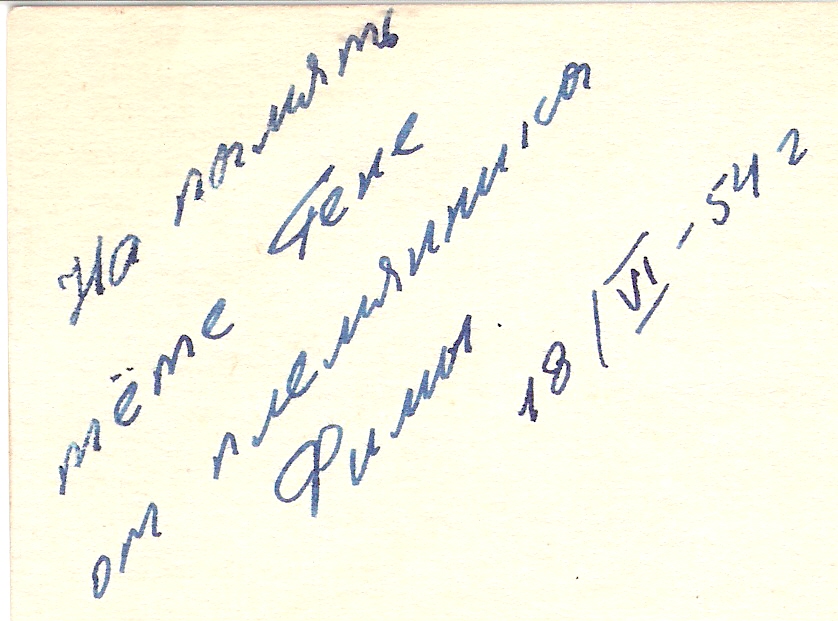 На память
тёте Гене
от племянника
Фимы.
18/VI-54 г